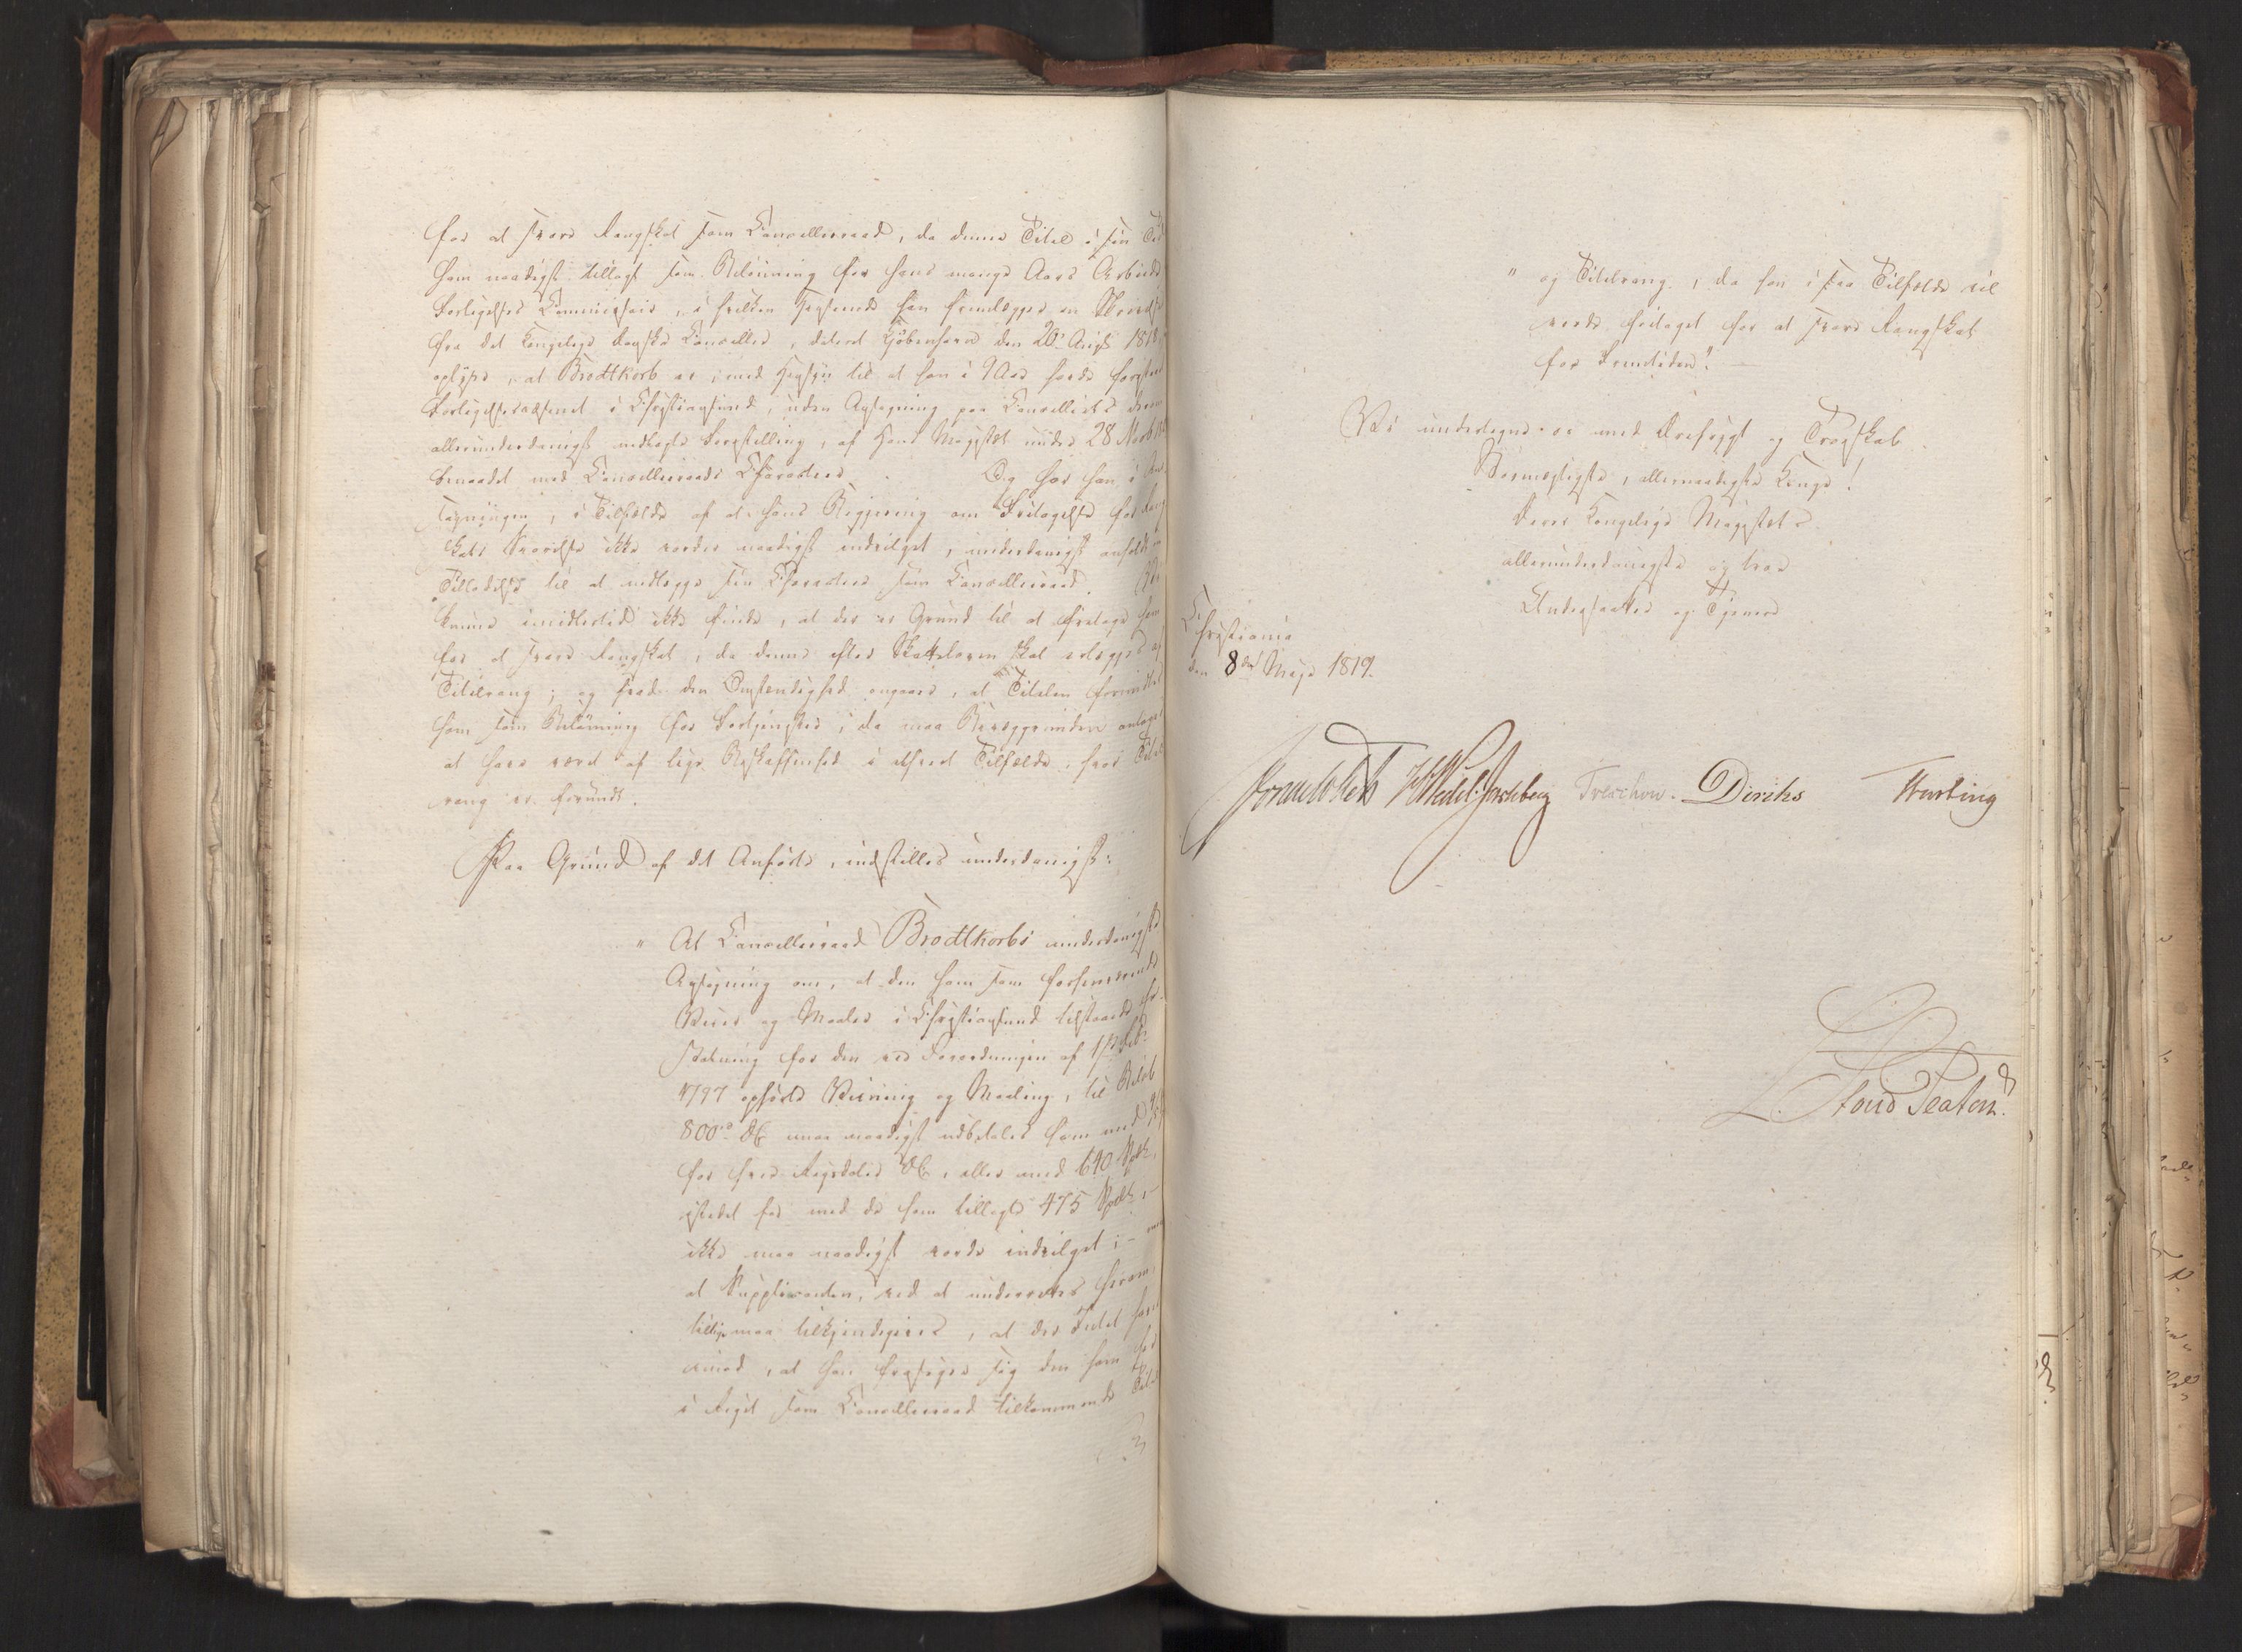 for at svare Rangskat som Cancelliraad, da denne Titel i sin Tid
ham naadigst tillagt som Belønning for hans mange Aars Arbeide
Forligelses Commissair, i hvilken Henseende han fremlægger en Skrivelse
fra det kongelige danske Cancellie, dateret Kjøbenhavn den 20 Aug: 1818,
oplyse, at Brodtkorb er, med Hensyn til at han i 9 Aar havde forestaaet
Forligelsesvæsenet i Christiansund, uden Ansøgning paa Cancelliets derom
allerunderdanigst nedlagte Forestilling, af Hans Majestæt under 28
benaadet med Cancelliraads Characteer. Og har han, i An-
søgningen, i Tilfælde af at hans Begjering om Fritagelse for Rang-
skats Svarelse ikke vorder naadigst indvilget, underdanigst anholdt om
Tilladelse til at nedlægge sin Characteer som Cancelliraad. Vi
kunne imidlertid ikke finde, at der er Grund til at fritage ham
for at svare Rangskat, da denne efter Skatteloven skal erlægges af
Titelrang; og hvad den Omstændighed angaaer, at Titelen formeentlig
ham som Belønning for Fortjenester, da maa Bevæggrunden antages
at have været af lige Beskaffenhed i ethvert Tilfælde, hvor Titel-
rang er forundt.
Paa Grund af det Anførte, indstilles underdanigst:
" At Cancelliraad Brodtkorbs underdanigste
Ansøgning om, at den ham som forhenværende
Veier og Maaler i Christiansund tilstaaede Er-
statning for den ved Forordningen af 1 Febr
1797 ophævede Veining og Maaling, til Beløb
800 rd DC maa naadigst udbetales ham med
for hver Rigsdaler DC, eller med 640 Spdlr,
istedet for med de ham tillagte 475 Spdlr,
ikke maa naadigst vorde indvilget; –
at Supplicanten, ved at underrettes herom,
tillige maa tilkjendegives, at der Intet haves
imod, at han frasiger sig den ham her
i Riget som Cancelliraad tilkommende Titel
" og Titelrang, da han i saa Tilfælde vil
vorde fritaget for at svare Rangskat
for Fremtiden". –
Vi undertegne os med Ærefrygt og Troskab
Stormægtigste, allernaadigste Konge!
Deres Kongelige Majestæts
allerunderdanigste og troe
Undersaatter og Tjenere
Christiania
den 8de Maji 1819.
Sommerhielm Wedel Jarlsberg Treschow. Diriks Hersleb
L. Stoud Platou.